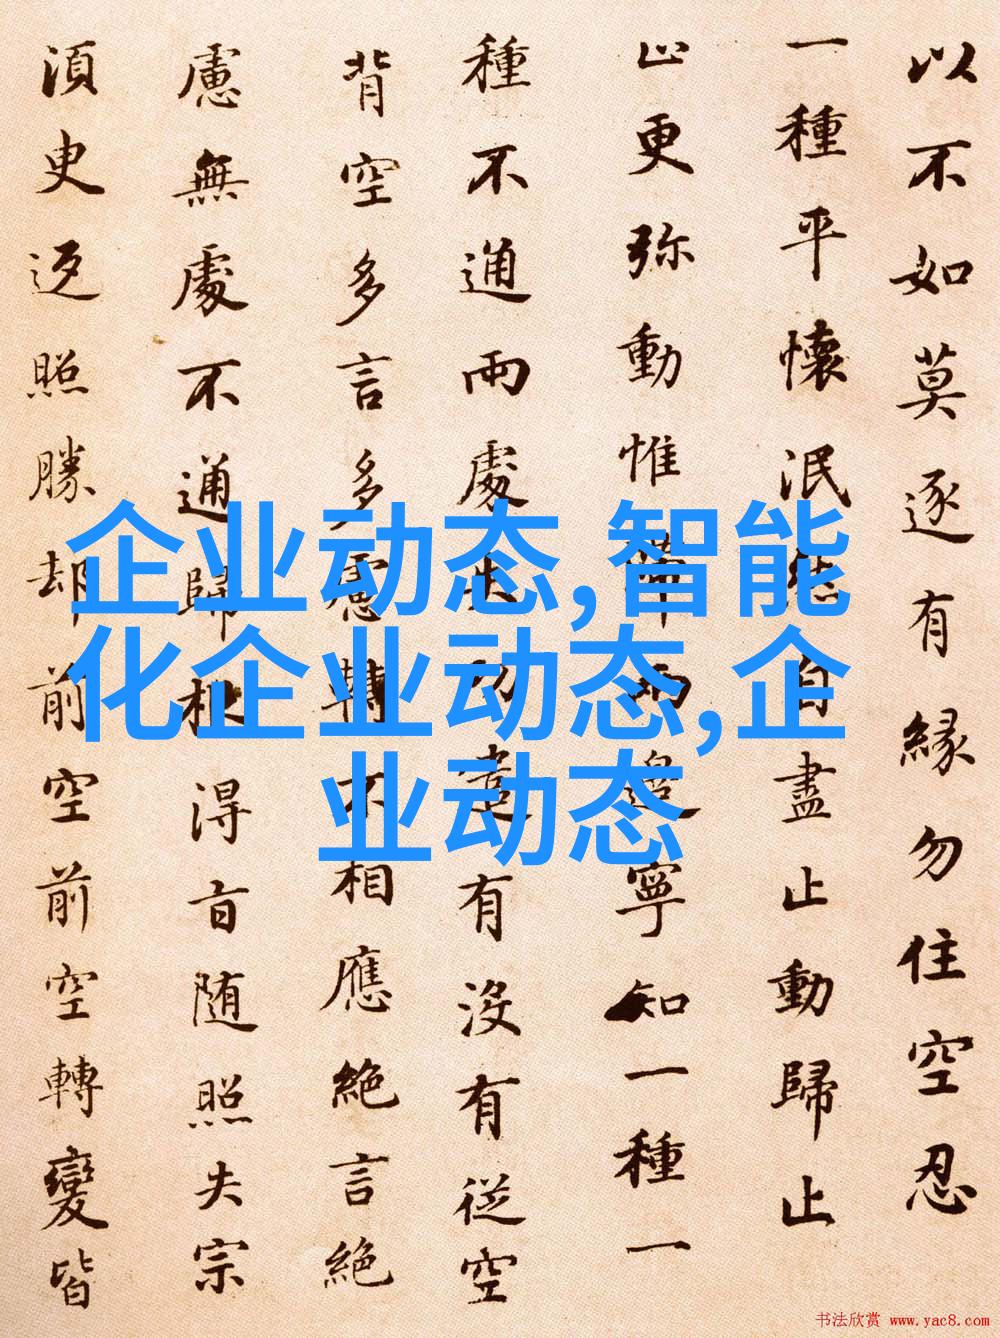 以不如莫逐有緣勿住空忍
一種平懷泯自盡止動歸止
止更弥動惟滯兩邊寧知一種一
種不通兩處失功遣有没有從空
背空多言多慮轉不相應絶言絶
慮無處不通歸根得旨随照失宗
湏臾返照勝却前空前空轉變皆
企业动态,智能
化企业动态,企
业动态
书法欣赏 www.yac8.com